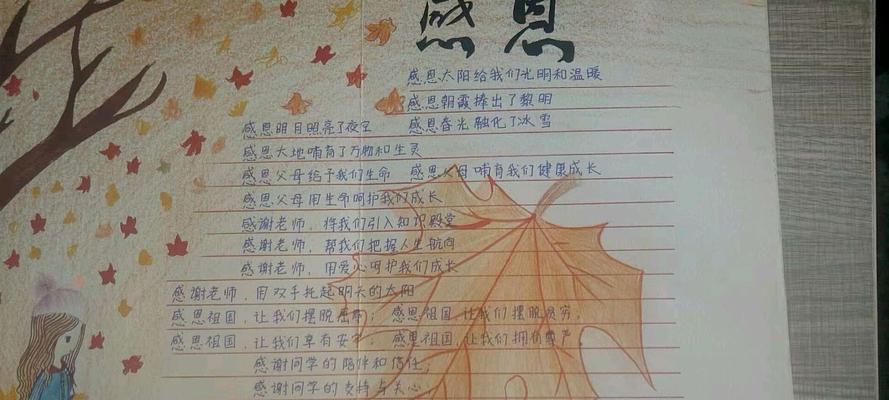 感恩
感恩太阳给我们光明和温暖
感恩朝霞捧出了黎明
感恩明月照亮了夜空 感恩春光融化了冰雪
感恩大地哺育了万物和生灵
感恩父母给予我们生命 感恩父母哺育我们健康成长
感恩父母用生命呵护我们成长
感谢老师,将我们引入知识殿堂
感谢老师,帮我们把握人生航向
感谢老师,用爱心呵护我们成长
感谢老师,用双手托起明天的太阳
感恩祖国,让我们摆脱屈辱; 感恩祖国,让我们摆脱贫穷,
感恩祖国,让我们享有安宁, 感恩祖国,让我们拥有尊严。
感谢同学的陪伴和信任;
感谢同学的支持与关心,